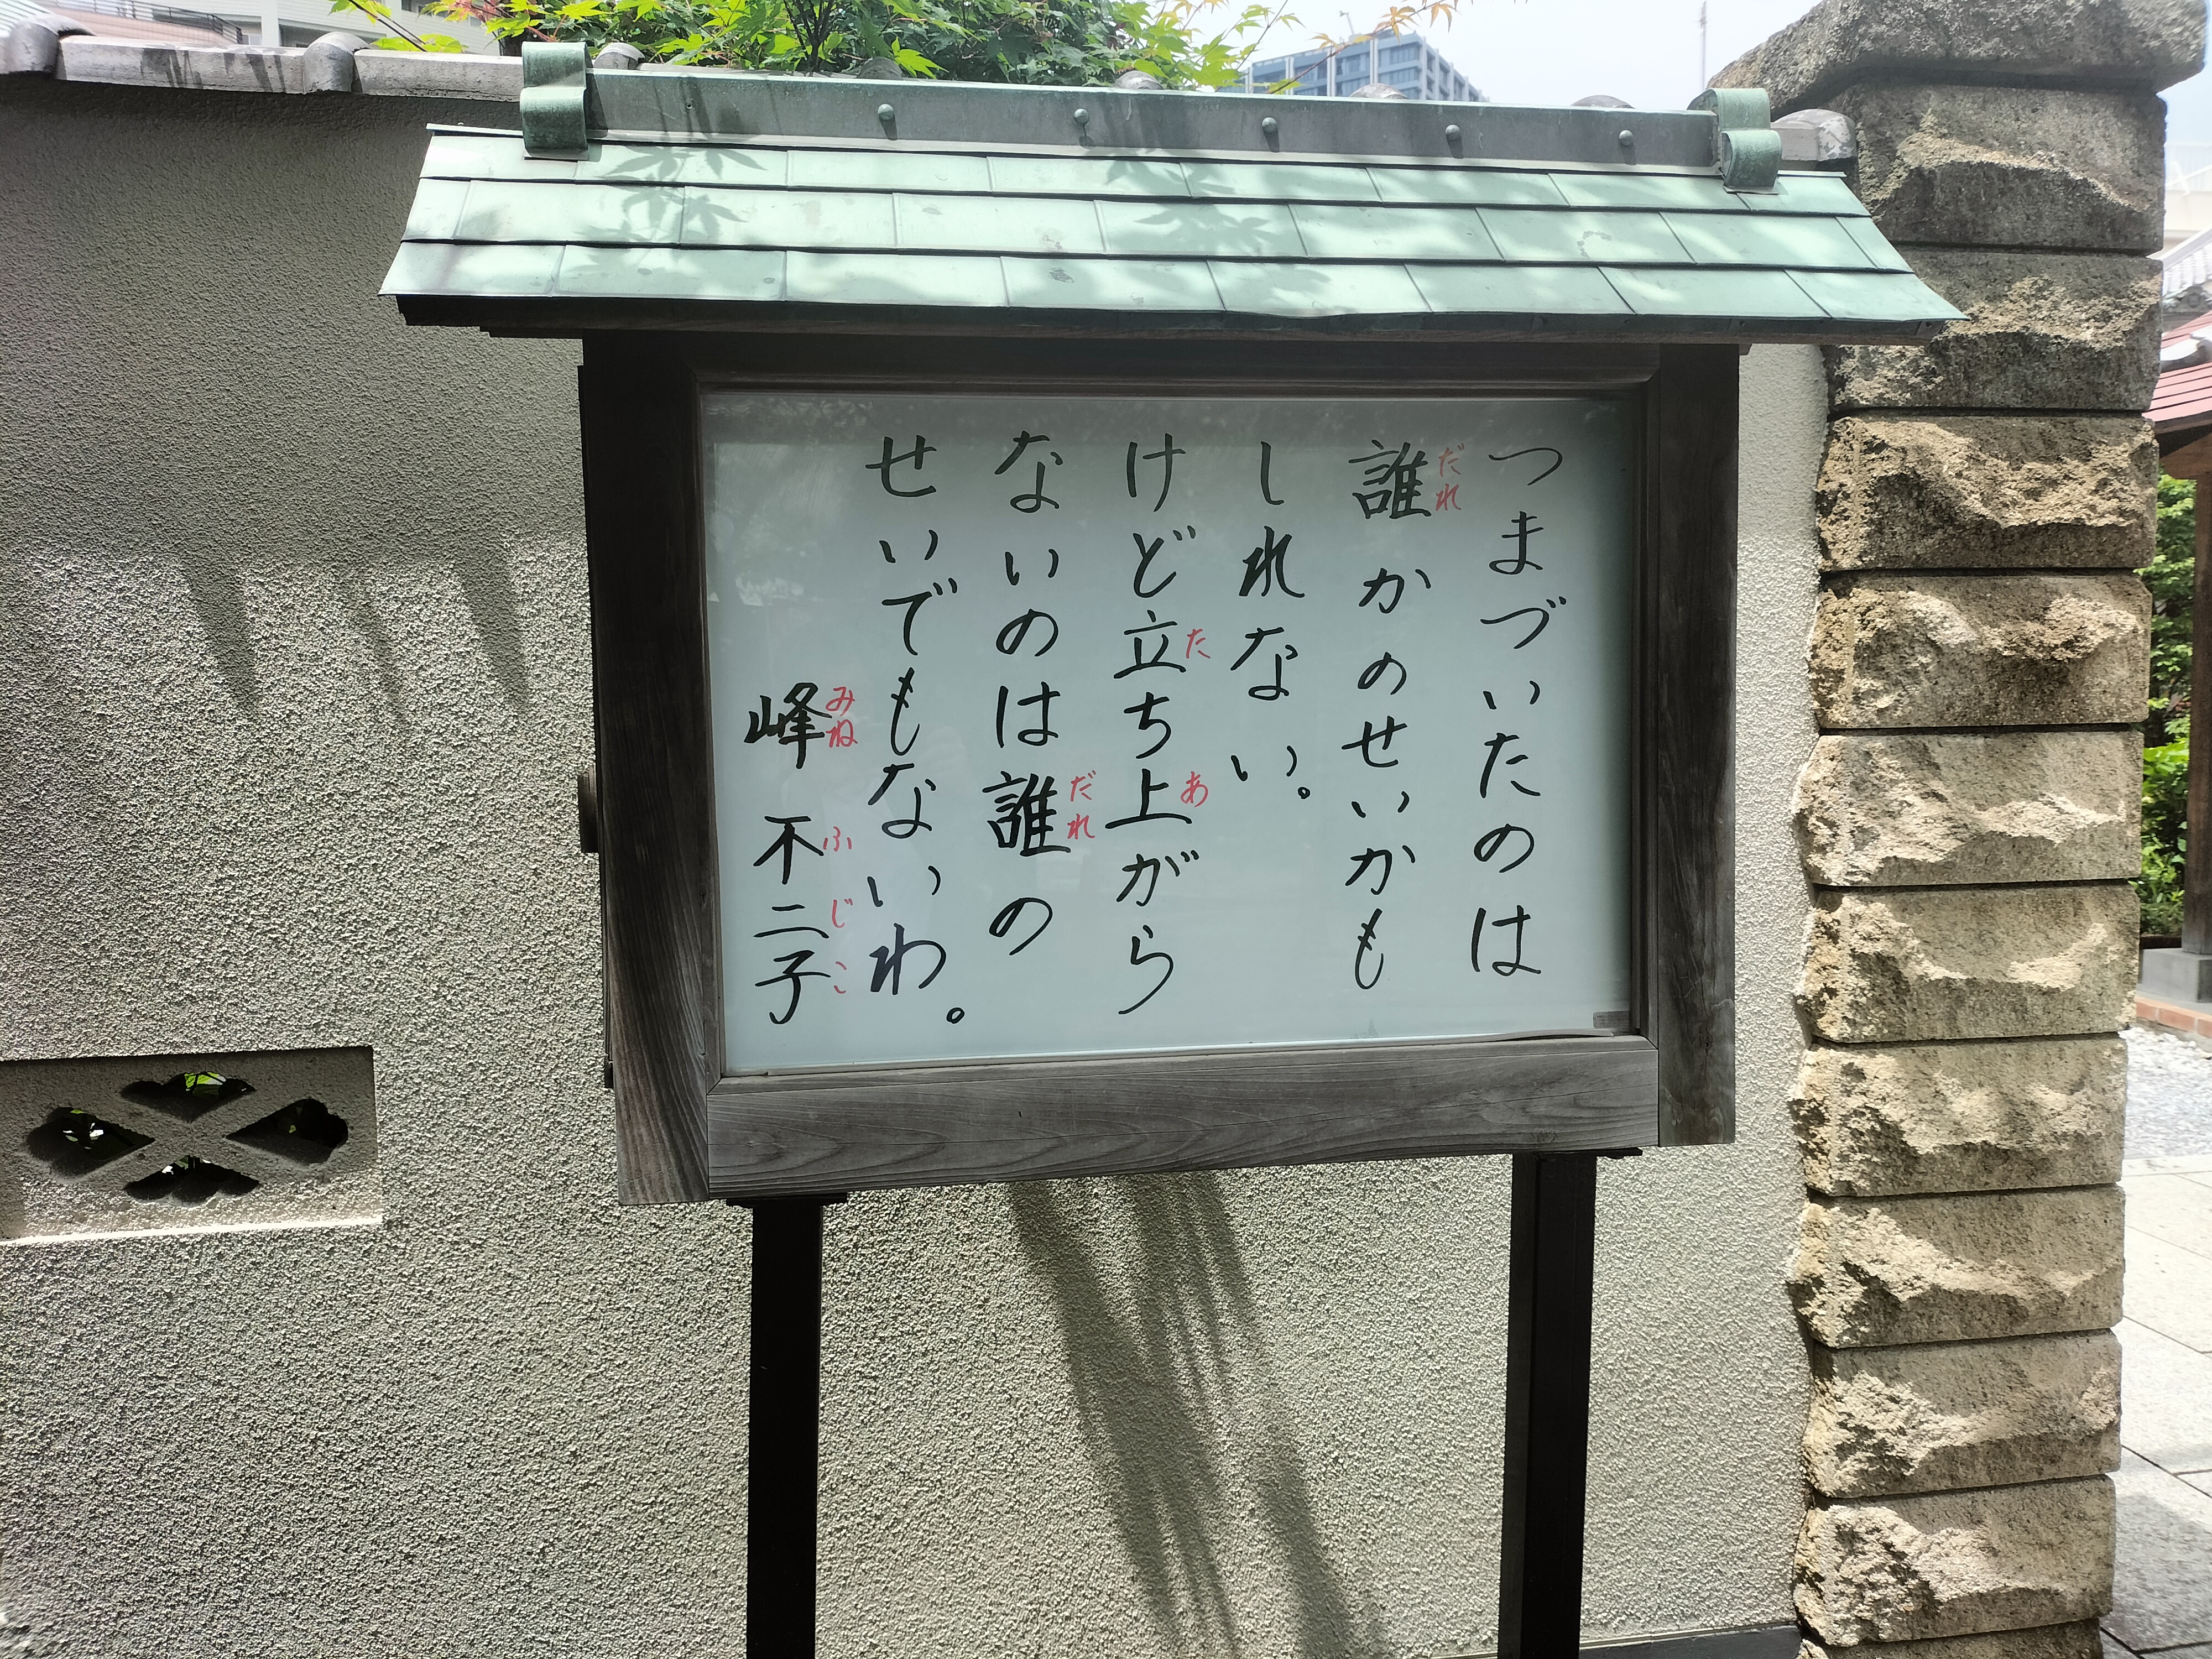 つまづいたのは
誰かのせいかも
しれない。
けど立ち上がら
ないのは誰の
せいでもないわ。
峰 不二子
だれ
た
あ
だれ
みね
ふ
じ
こ